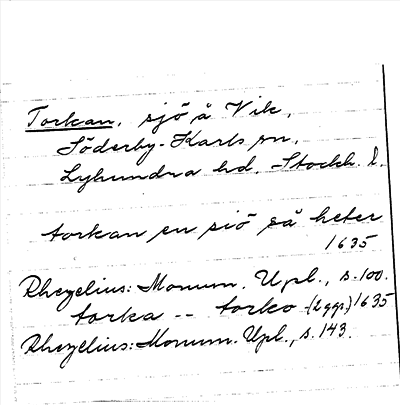 Torkan, sjö å Vik,
Söderby-Karls sn,
Lyhundra hd, Stockh. l.
torkan en siö så heter
1635
Rhezelius: Monum. Upl., s. 100.
torka -- torko (2 ggr) 1635
Rhezelius: Monum. Upl., s. 143.